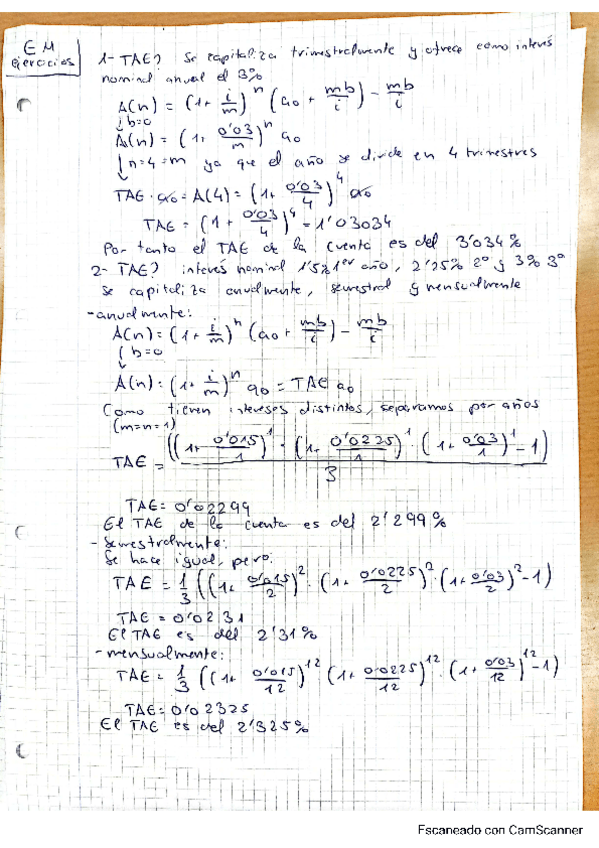 EM
ejercicios
1- TAE? Se capitaliza trimestralmente y ofrece como interés
nominal anual el 3%
A(n) = (1 + i/m)^n (a₀ + mb/i) - mb/i
↓ b=0
A(n) = (1 + 0'03/m)^n a₀
↓ n=4=m ya que el año se divide en 4 trimestres
TAE · a₀ = A(4) = (1 + 0'03/4)^4 a₀
TAE = (1 + 0'03/4)^4 = 1'03034
Por tanto el TAE de la cuenta es del 3'034%
2- TAE? interés nominal 1'5% 1er año, 2'25% 2º y 3% 3º
Se capitaliza anualmente, semestral y mensualmente
- anualmente:
A(n) = (1 + i/m)^n (a₀ + mb/i) - mb/i
↓ b=0
A(n) = (1 + i/m)^n a₀ = TAE a₀
Como tienen intereses distintos, separamos por años
(m=n=1)
TAE = ((1 + 0'015/1)^1 · (1 + 0'0225/1)^1 · (1 + 0'03/1)^1 - 1) / 3
TAE = 0'02299
El TAE de la cuenta es del 2'299%
- Semestralmente:
Se hace igual, pero:
TAE = 1/3 ((1 + 0'015/2)^2 · (1 + 0'0225/2)^2 · (1 + 0'03/2)^2 - 1)
TAE = 0'0231
El TAE es del 2'31%
- mensualmente:
TAE = 1/3 ((1 + 0'015/12)^12 (1 + 0'0225/12)^12 · (1 + 0'03/12)^12 - 1)
TAE = 0'02325
El TAE es del 2'325%
Escaneado con CamScanner